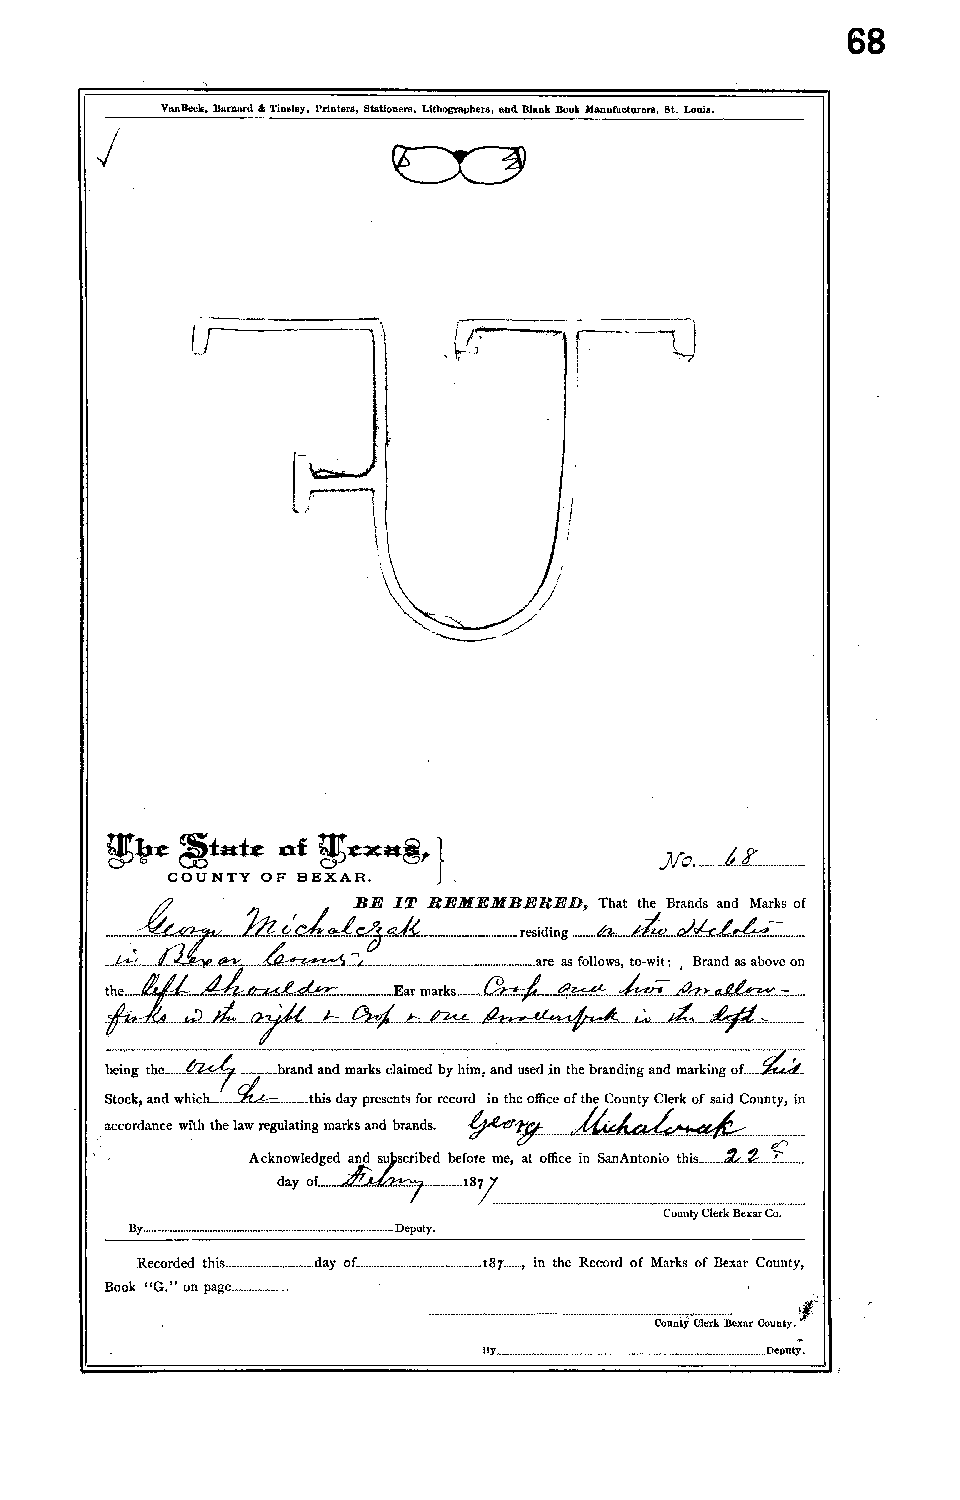 68
VanBeck, Barnard & Tinsley, Printers, Stationers, Lithographers, and Blank Book Manufacturers, St. Louis.
The State of Texas,
COUNTY OF BEXAR.
No. 68
BE IT REMEMBERED, That the Brands and Marks of
George Michalczak residing on the Helotes
in Bexar County, are as follows, to-wit: Brand as above on
the left shoulder Ear marks Crop and two swallow-
forks in the right & Crop & one swallowfork in the left
being the only brand and marks claimed by him, and used in the branding and marking of his
Stock, and which he this day presents for record in the office of the County Clerk of said County, in
accordance with the law regulating marks and brands. Georg Michalczak
Acknowledged and subscribed before me, at office in SanAntonio this 22d
day of Febry 1877
County Clerk Bexar Co.
By Deputy.
Recorded this day of 187 , in the Record of Marks of Bexar County,
Book "G," on page
County Clerk Bexar County.
By Deputy.